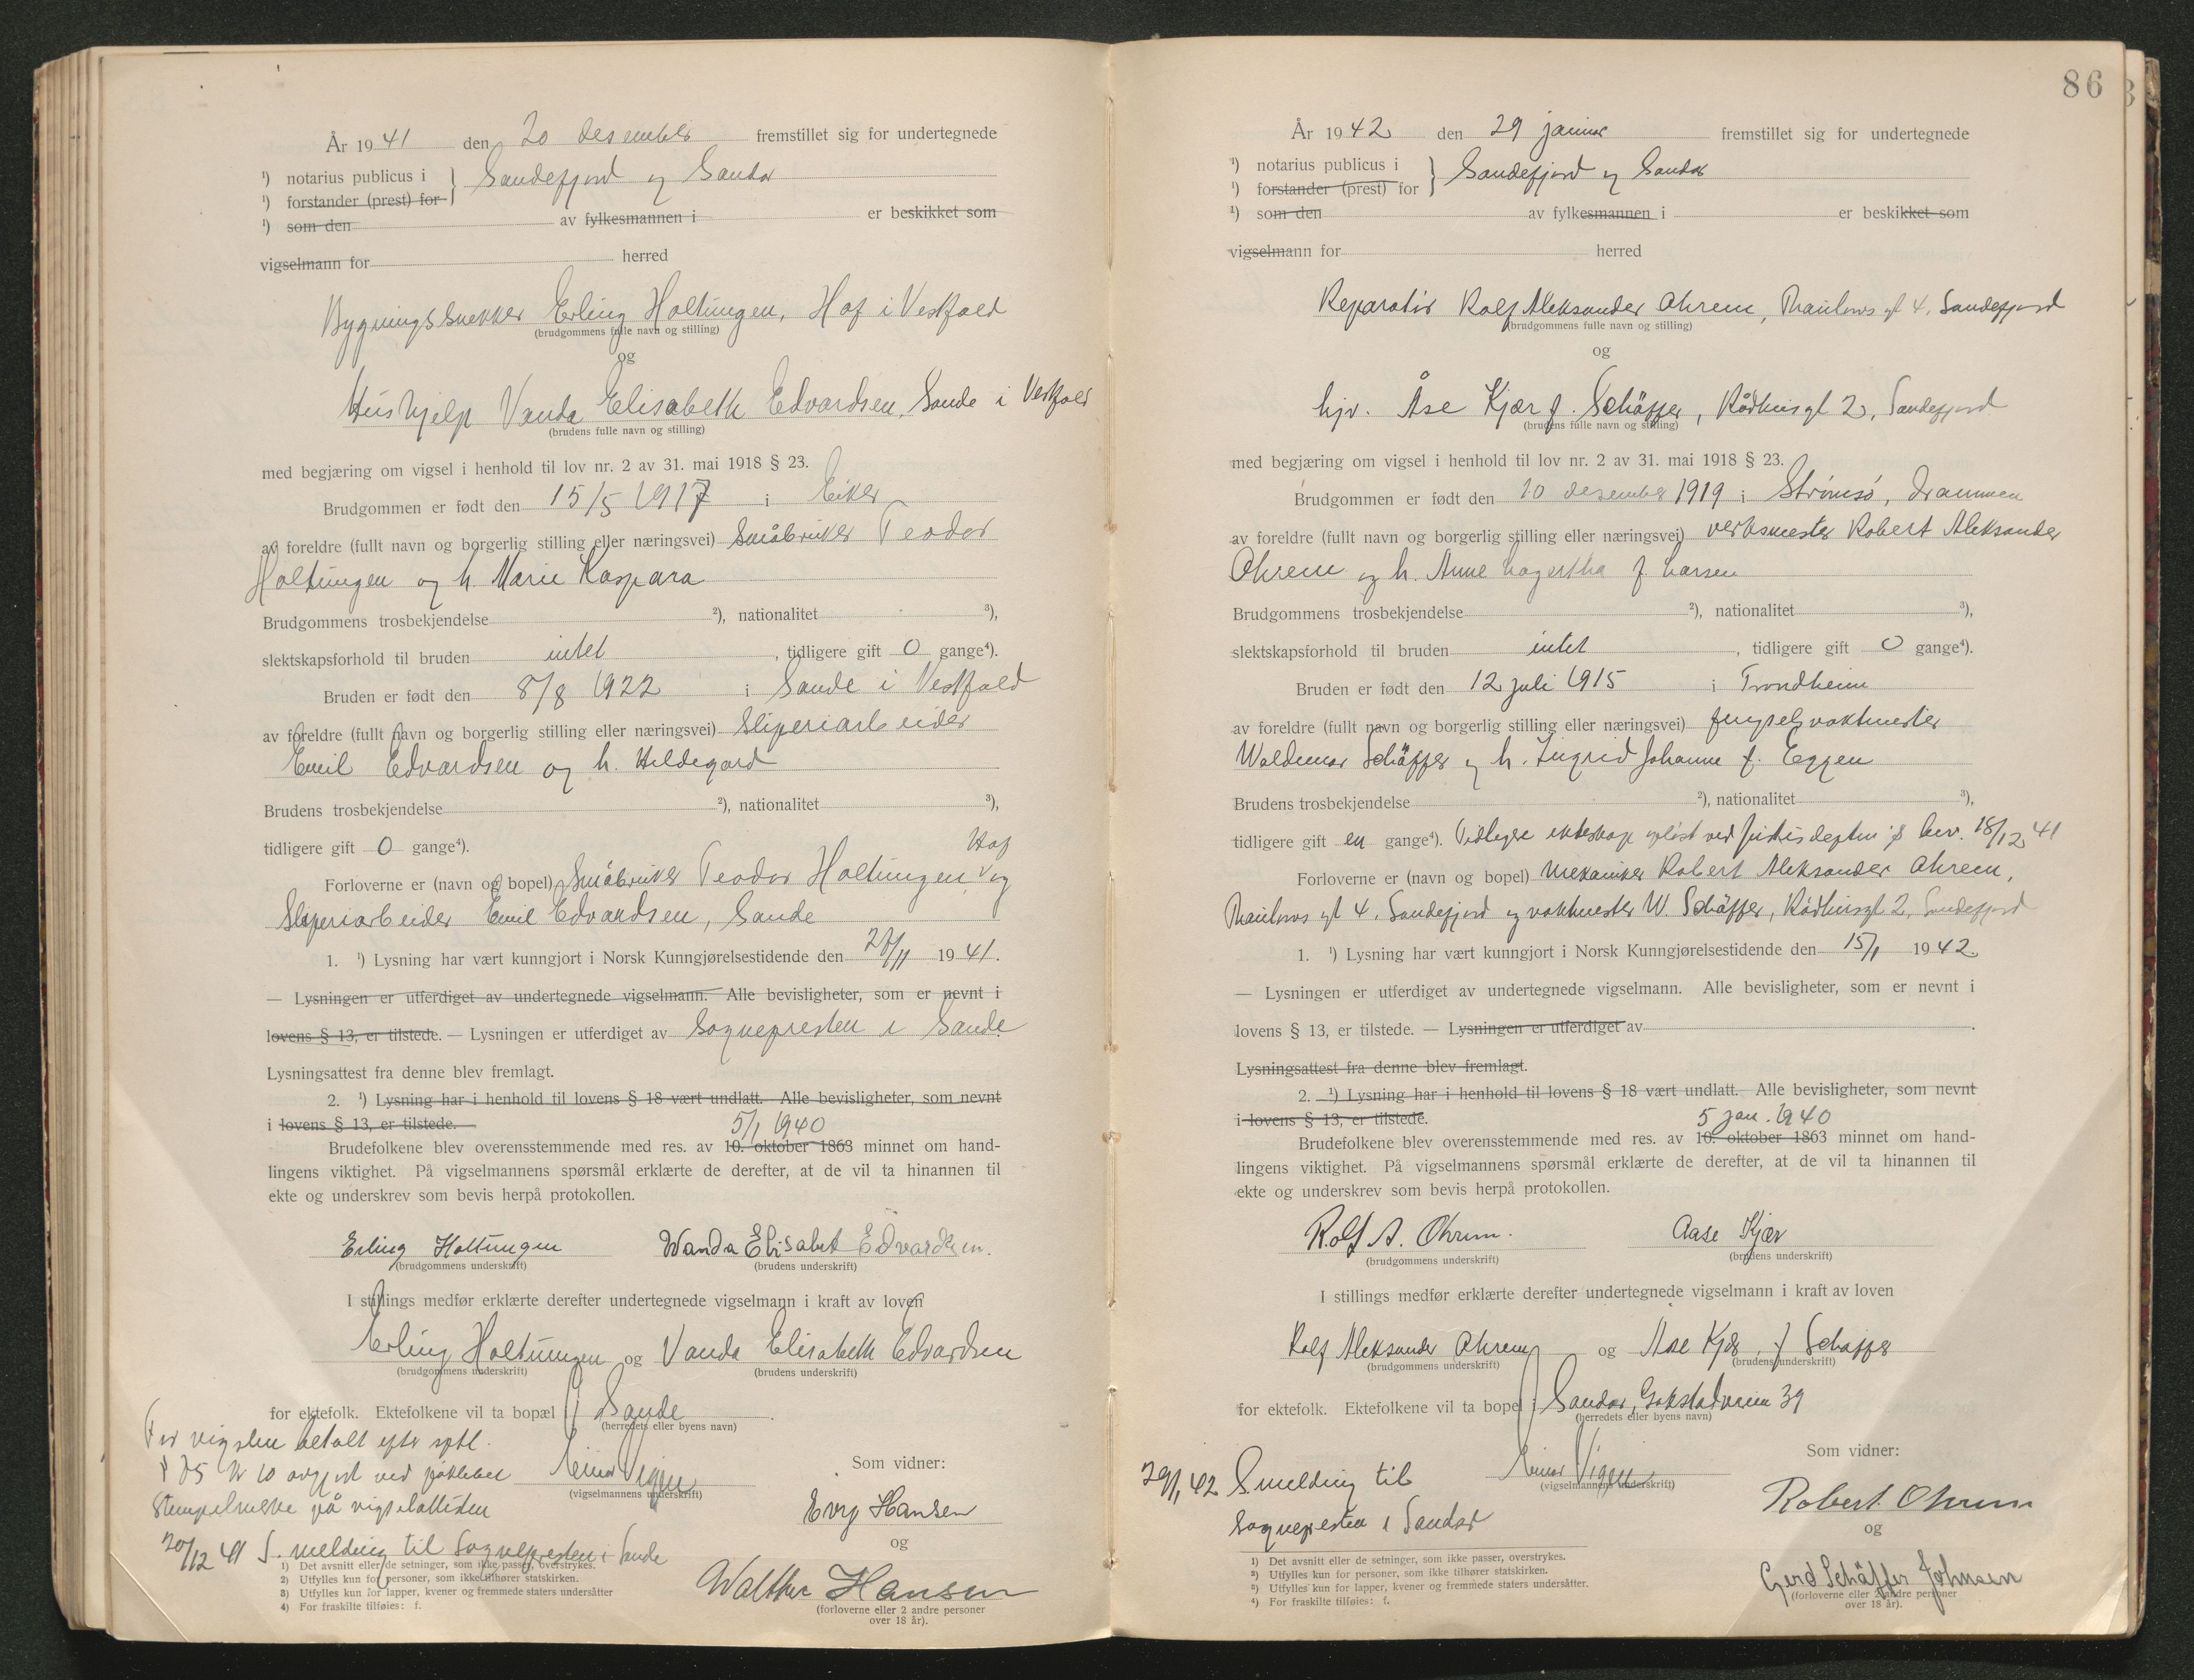 År 1941 den 20 desember fremstillet sig for undertegnede
¹) notarius publicus i } Sandefjord og Sandar
¹) forstander (prest) for
¹) som den av fylkesmannen i er beskikket som
vigselmann for herred
Bygningssnekker Erling Holtungen, Hof i Vestfold
(brudgommens fulle navn og stilling)
og
Hushjelp Vanda Elisabeth Edvardsen, Sande i Vestfold
(brudens fulle navn og stilling)
med begjæring om vigsel i henhold til lov nr. 2 av 31. mai 1918 § 23.
Brudgommen er født den 15/5 1917 i Eiker
av foreldre (fullt navn og borgerlig stilling eller næringsvei) Småbruker Teodor
Holtungen og h. Marie Kaspara
Brudgommens trosbekjendelse ²), nationalitet ³),
slektskapsforhold til bruden intet, tidligere gift 0 gange⁴).
Bruden er født den 8/8 1922 i Sande i Vestfold
av foreldre (fullt navn og borgerlig stilling eller næringsvei) Sliperiarbeider
Emil Edvardsen og h. Hildegard
Brudens trosbekjendelse ²), nationalitet ³),
tidligere gift 0 gange⁴).
Hof
Forloverne er (navn og bopel) Småbruker Teodor Holtungen og
Sliperiarbeider Emil Edvardsen, Sande
1. ¹) Lysning har vært kunngjort i Norsk Kunngjørelsestidende den /11 1941.
— Lysningen er utferdiget av undertegnede vigselmann. Alle bevisligheter, som er nevnt i
lovens § 13, er tilstede. — Lysningen er utferdiget av Sognepresten i Sande
Lysningsattest fra denne blev fremlagt.
2. ¹) Lysning har i henhold til lovens § 18 vært undlatt. Alle bevisligheter, som nevnt
i lovens § 13, er tilstede.
5/1 1940
Brudefolkene blev overensstemmende med res. av 10. oktober 1863 minnet om hand-
lingens viktighet. På vigselmannens spørsmål erklærte de derefter, at de vil ta hinannen til
ekte og underskrev som bevis herpå protokollen.
Erling Holtungen Wanda Elisabet Edvardsen.
(brudgommens underskrift) (brudens underskrift)
I stillings medfør erklærte derefter undertegnede vigselmann i kraft av loven
Erling Holtungen og Vanda Elisabeth Edvardsen
(brudgommens underskrift) (brudens underskrift)
for ektefolk. Ektefolkene vil ta bopæl i Sande.
(herredets eller byens navn)
For vigslen betalt efter sptl.
§ 75 kr 10 avgjort ved påklebet
stempelmerke på vigselattesten
Einar Vigen
(vigselmannens underskrift)
Som vidner:
Evry Hansen
og
Walther Hansen
(forloverne eller 2 andre personer
over 18 år).
20/12 41 S. melding til Sognepresten i Sande
1) Det avsnitt eller de setninger, som ikke passer, overstrykes.
2) Utfylles kun for personer, som ikke tilhører statskirken.
3) Utfylles kun for lapper, kvener og fremmede staters undersåtter
4) For fraskilte tilføies: f.
86
År 1942 den 29 januar fremstillet sig for undertegnede
¹) notarius publicus i } Sandefjord og Sandar
¹) forstander (prest) for
¹) som den av fylkesmannen i er beskikket som
vigselmann for herred
Reparatør Rolf Aleksander Ohrem, Thaulows gt 4, Sandefjord
(brudgommens fulle navn og stilling)
og
hjv. Åse Kjær f. Schäffer, Rådhusgt 2, Sandefjord
(brudens fulle navn og stilling)
med begjæring om vigsel i henhold til lov nr. 2 av 31. mai 1918 § 23.
Brudgommen er født den 10 desember 1919 i Strømsø, Drammen
av foreldre (fullt navn og borgerlig stilling eller næringsvei) verksmester Robert Aleksander
Ohrem og h. Anne Lagertha f. Larsen
Brudgommens trosbekjendelse ²), nationalitet ³),
slektskapsforhold til bruden intet, tidligere gift 0 gange⁴).
Bruden er født den 12 juli 1915 i Trondheim
av foreldre (fullt navn og borgerlig stilling eller næringsvei) fengselsvaktmester
Waldemar Schäffer og h. Ingrid Johanne f. Eggen
Brudens trosbekjendelse ²), nationalitet ³),
tidligere gift en gange⁴). Tidligere ekteskap opløst ved Justisdeptm's bev. 18/12 41
Forloverne er (navn og bopel) mekaniker Robert Aleksander Ohrem,
Thaulows gt 4, Sandefjord og vaktmester W. Schäffer, Rådhusgt 2, Sandefjord
1. ¹) Lysning har vært kunngjort i Norsk Kunngjørelsestidende den 15/1 1942.
— Lysningen er utferdiget av undertegnede vigselmann. Alle bevisligheter, som er nevnt i
lovens § 13, er tilstede. — Lysningen er utferdiget av .
Lysningsattest fra denne blev fremlagt.
2. ¹) Lysning har i henhold til lovens § 18 vært undlatt. Alle bevisligheter, som nevnt
i lovens § 13, er tilstede.
5 jan. 1940
Brudefolkene blev overensstemmende med res. av 10. oktober 1863 minnet om hand-
lingens viktighet. På vigselmannens spørsmål erklærte de derefter, at de vil ta hinannen til
ekte og underskrev som bevis herpå protokollen.
Rolf A. Ohrem. Aase Kjær
(brudgommens underskrift) (brudens underskrift)
I stillings medfør erklærte derefter undertegnede vigselmann i kraft av loven
Rolf Aleksander Ohrem og Åse Kjær f Schäffer
(brudgommens underskrift) (brudens underskrift)
for ektefolk. Ektefolkene vil ta bopel i Sandar, Gokstadveien 39
(herredets eller byens navn)
29/1 42 S melding til
Sognepresten i Sandar
Einar Vigen
(vigselmannens underskrift)
Som vidner:
Robert Ohrem
og
Gerd Schäffer Johnsen
(forloverne eller 2 andre personer
over 18 år).
1) Det avsnitt eller de setninger, som ikke passer, overstrykes.
²) Utfylles kun for personer, som ikke tilhører statskirken.
³) Utfylles kun for lapper, kvener og fremmede staters undersåtter.
⁴) For fraskilte tilføies: f.